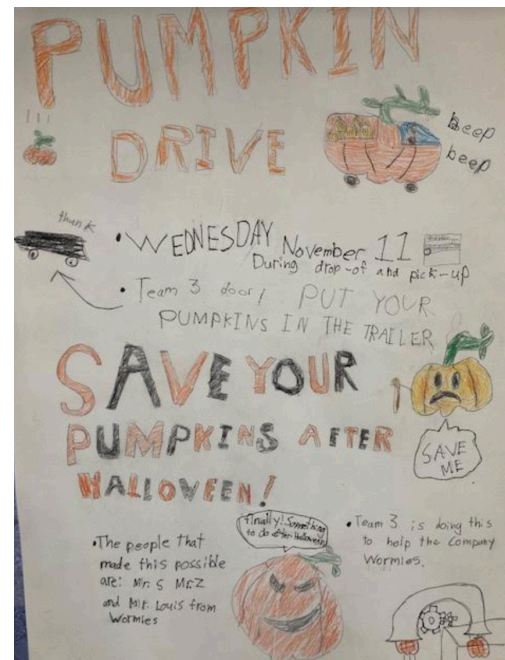 PUMPKIN
DRIVE
beep
beep
thunk
• WEDNESDAY November 11
During drop-of and pick-up
• Team 3 door! PUT YOUR
PUMPKINS IN THE TRAILER
SAVE YOUR
PUMPKINS AFTER
HALLOWEEN!
SAVE
ME
finally! Something
to do after Halloween
• The people that
made this possible
are: Mr. S Mr. Z
and Mr. Louis from
Wormies
• Team 3 is doing this
to help the Company
Wormies.